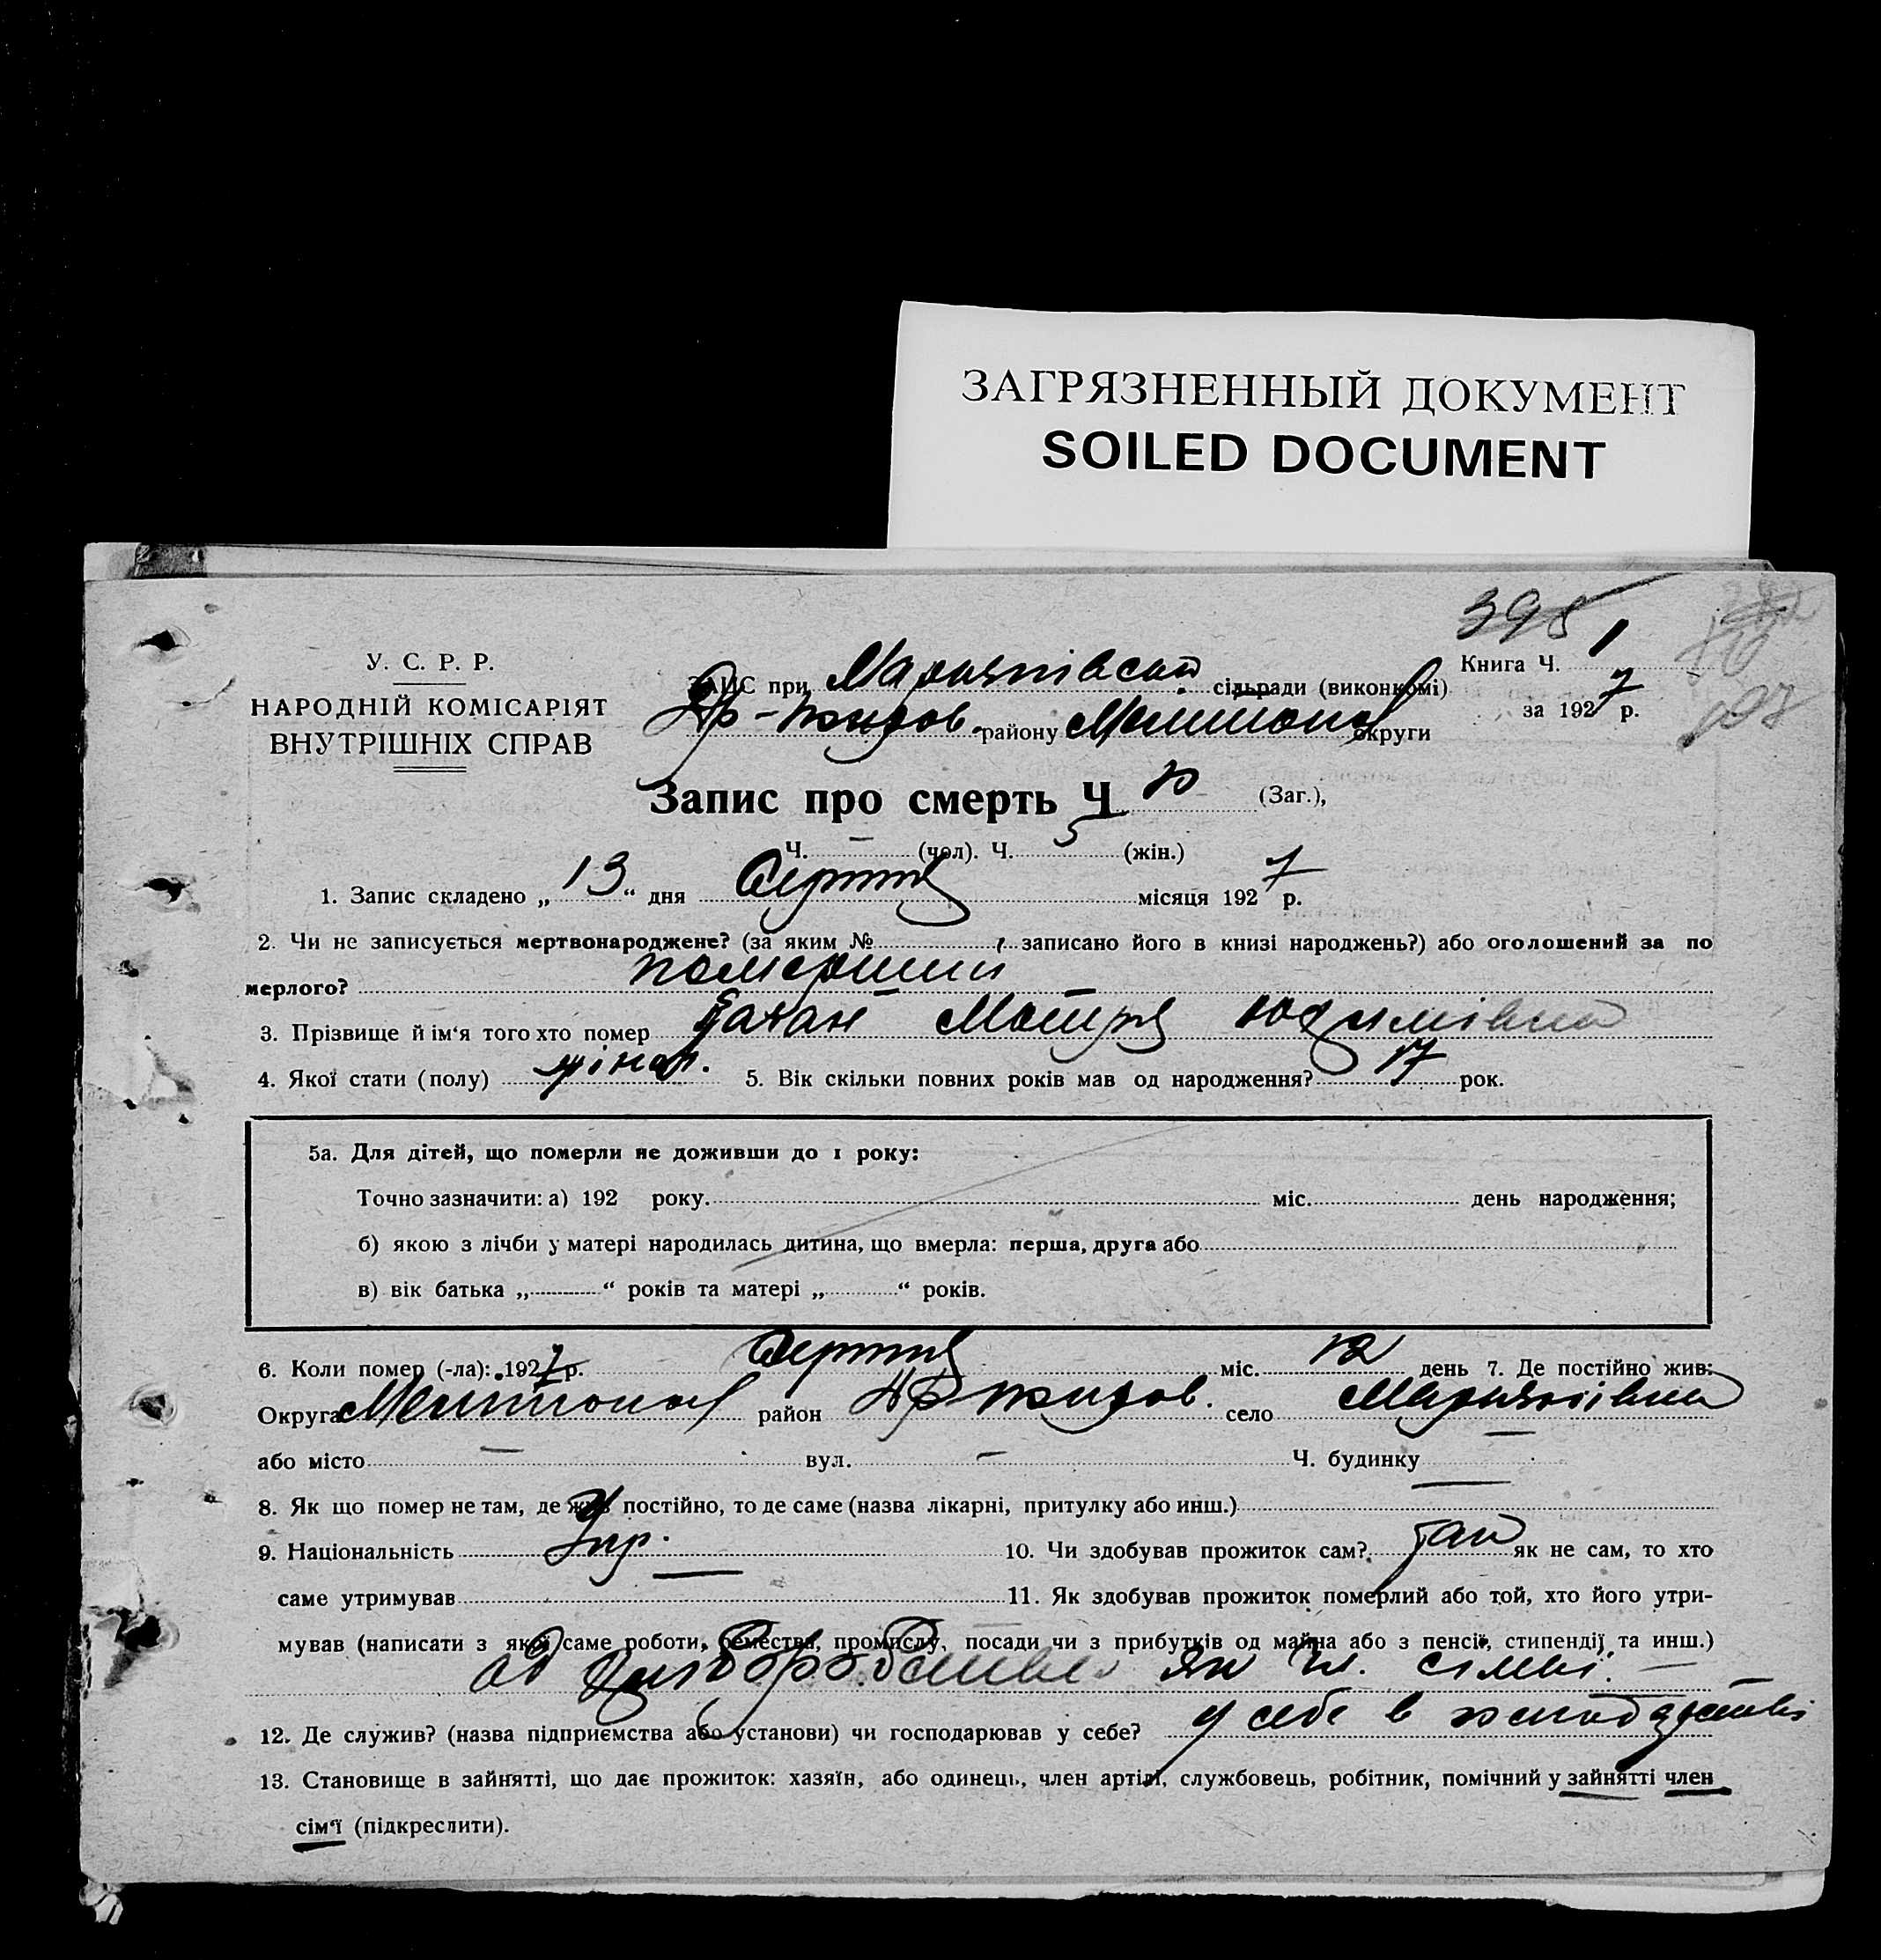 ЗАГРЯЗНЕННЫЙ ДОКУМЕНТ
SOILED DOCUMENT
395
У. С. Р. Р.
НАРОДНІЙ КОМІСАРІЯТ
ВНУТРІШНІХ СПРАВ
Книга Ч. 1
за 1927 р.
ЗАПИС при сільради (виконкомі)
району округи
Запис про смерть Ч. 10 (Заг.),
Ч. — (чол). Ч. 5 (жін.)
1. Запис складено „ 13 “ дня Серпня місяця 1927 р.
2. Чи не записується мертвонароджене? (за яким № записано його в книзі народжень?) або оголошений за по
мерлого? померший
3. Прізвище й ім‘я того хто помер
4. Якої стати (полу) жіноч. 5. Вік скільки повних років мав од народження? 17 рок.
5а. Для дітей, що померли не доживши до 1 року:
Точно зазначити: а) 192 року. міс. день народження;
б) якою з лічби у матері народилась дитина, що вмерла: перша, друга або
в) вік батька „ “ років та матері „ “ років.
6. Коли помер (-ла): 1927 р. Серпня міс. 12 день 7. Де постійно жив:
Округа район село
або місто — вул. — Ч. будинку
8. Як що помер не там, де жив постійно, то де саме (назва лікарні, притулку або инш.)
9. Національність Укр. 10. Чи здобував прожиток сам? як не сам, то хто
саме утримував 11. Як здобував прожиток померлий або той, хто його утри-
мував (написати з якої саме роботи, ремества, промислу, посади чи з прибутків од майна або з пенсії, стипендії та инш.)
од хліборобства як чл. сімьі.
12. Де служив? (назва підприємства або установи) чи господарював у себе? у себе в господарстві
13. Становище в зайнятті, що дає прожиток: хазяїн, або одинець, член артілі, службовець, робітник, помічний у зайнятті член
сім‘ї (підкреслити).